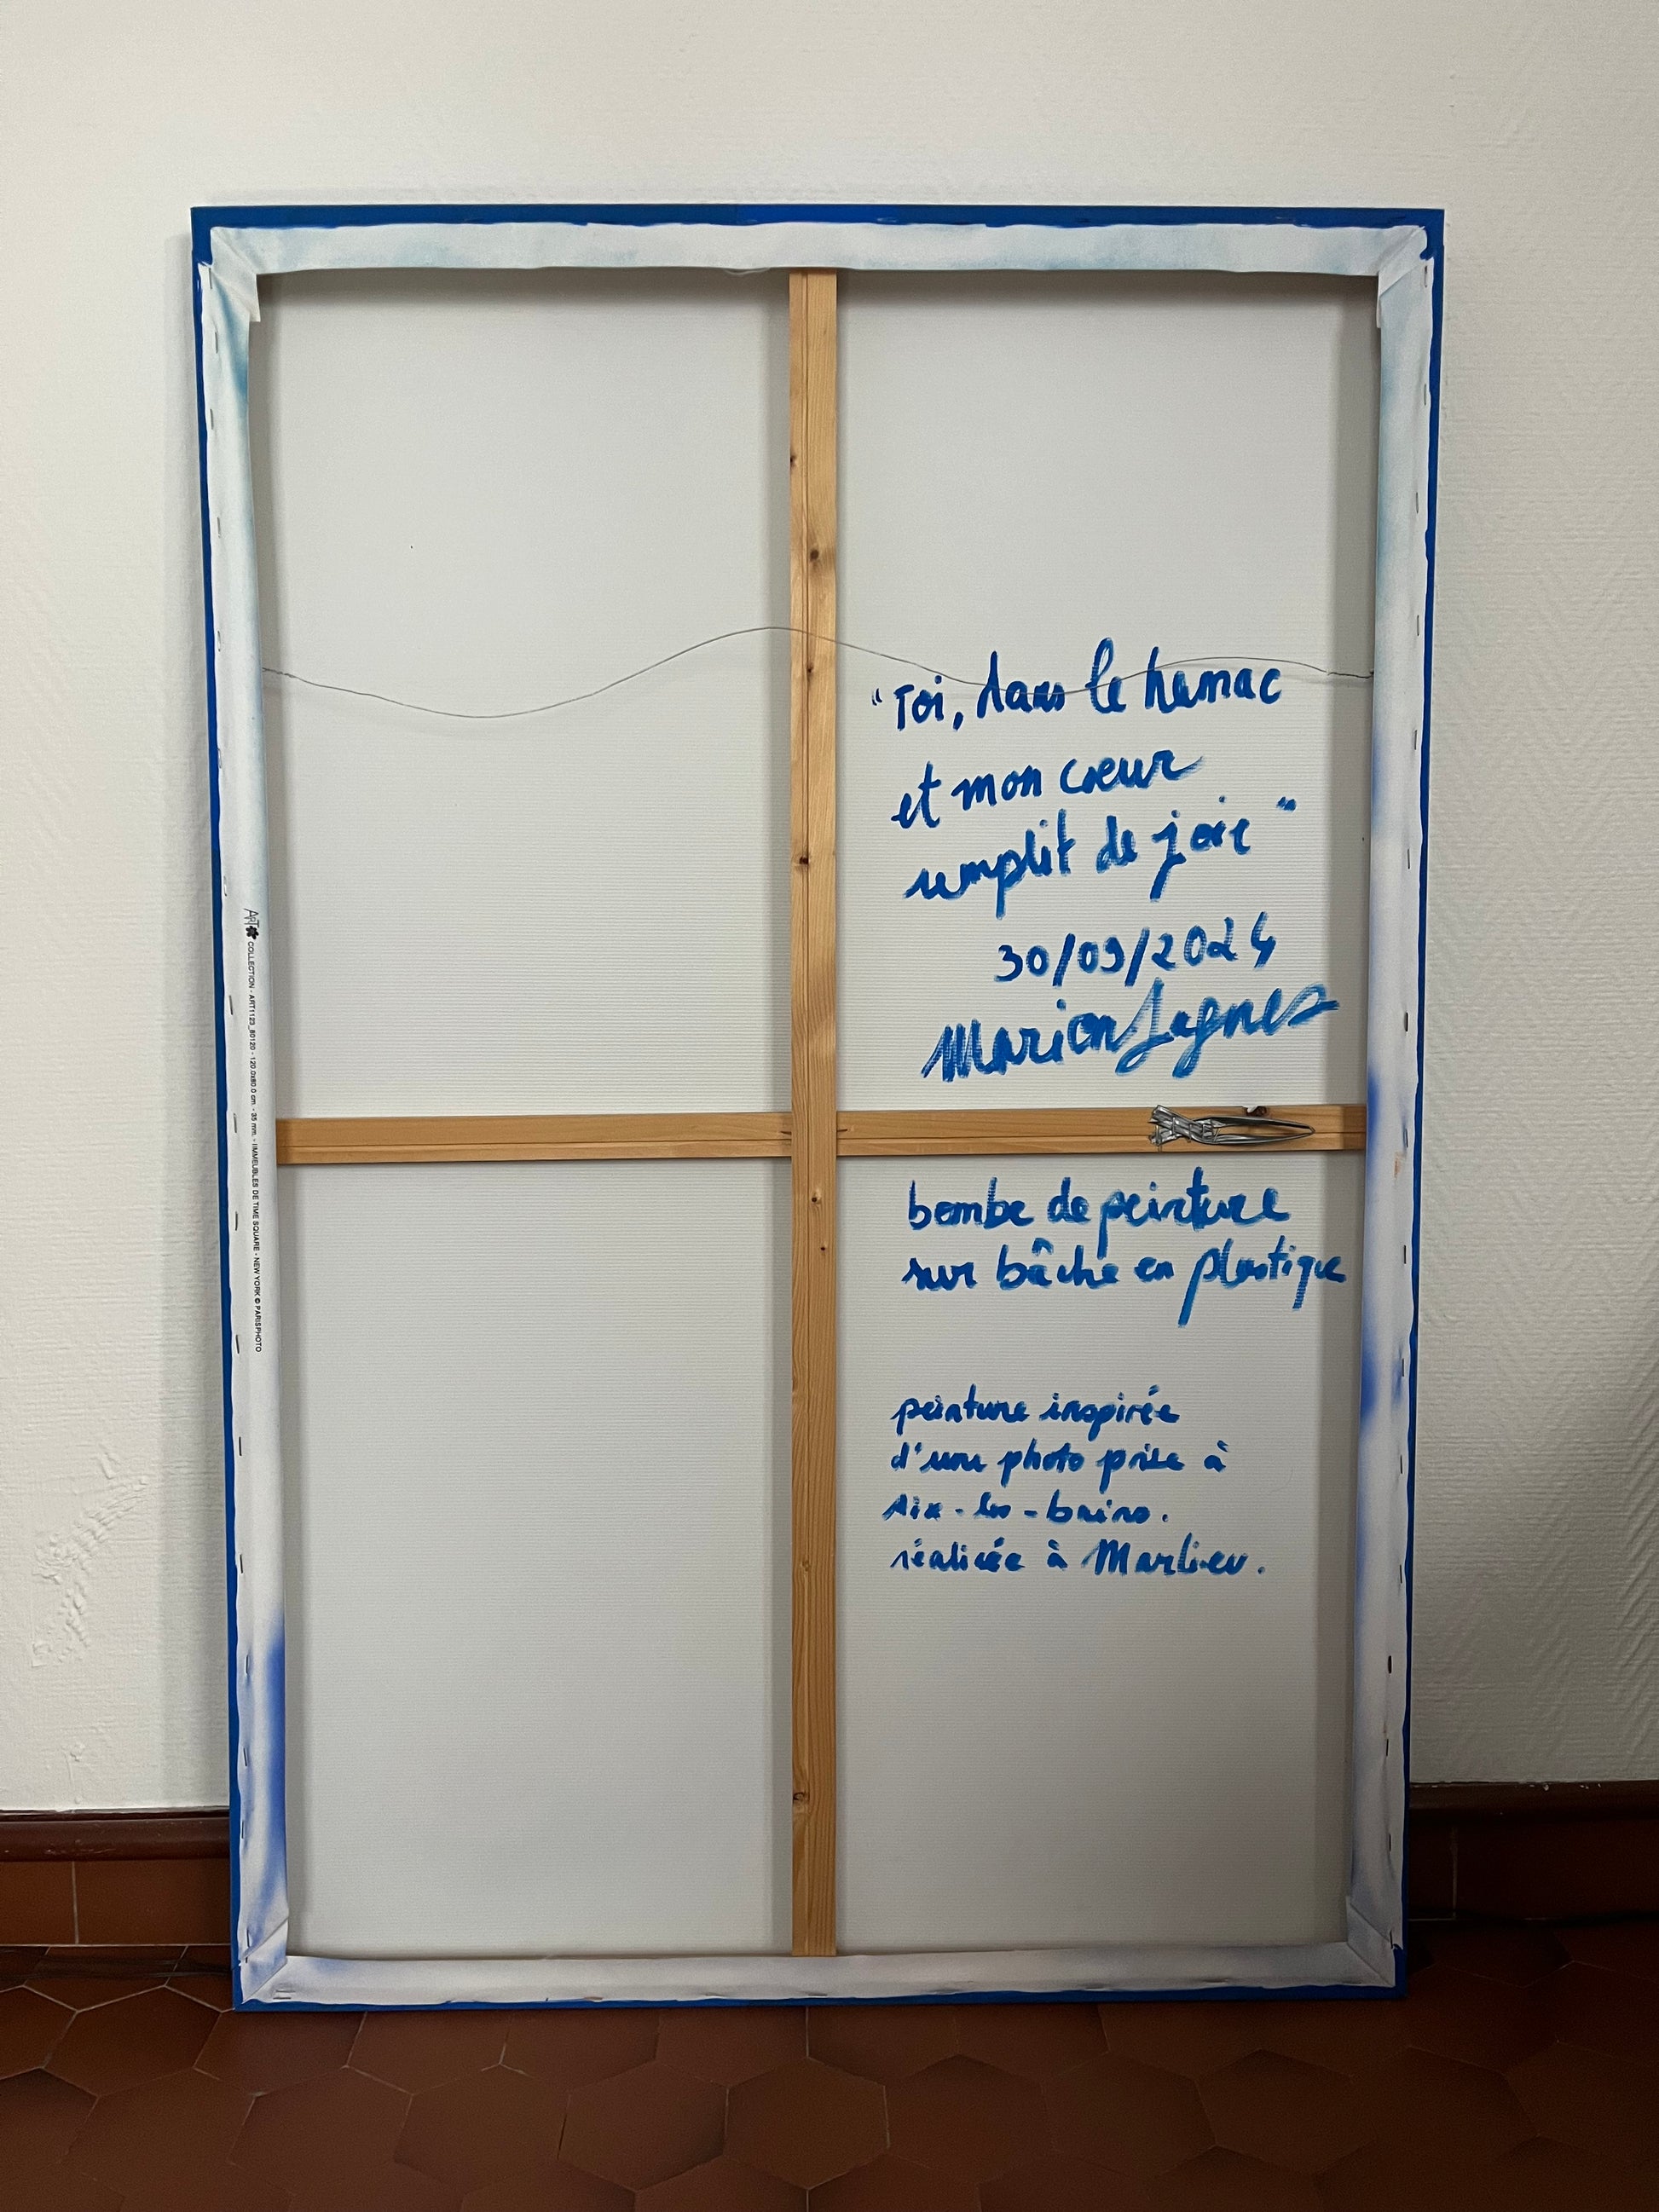 "Toi, dans le hamac
et mon coeur
remplit de joie"
30/09/2024
Marion Jagnes
bombe de peinture
sur bâche en plastique
peinture inspirée
d'une photo prise à
Aix-les-bains.
réalisée à Marlieu.
ART COLLECTION - ART1123_80120 - 120.0x80.0 cm. - 35 mm. - IMMEUBLES DE TIME SQUARE - NEW YORK © PARISPHOTO